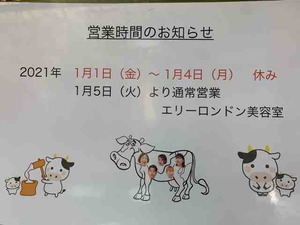 営業時間のお知らせ
2021年 1月1日（金）～1月4日（月） 休み
1月5日（火）より通常営業
エリーロンドン美容室